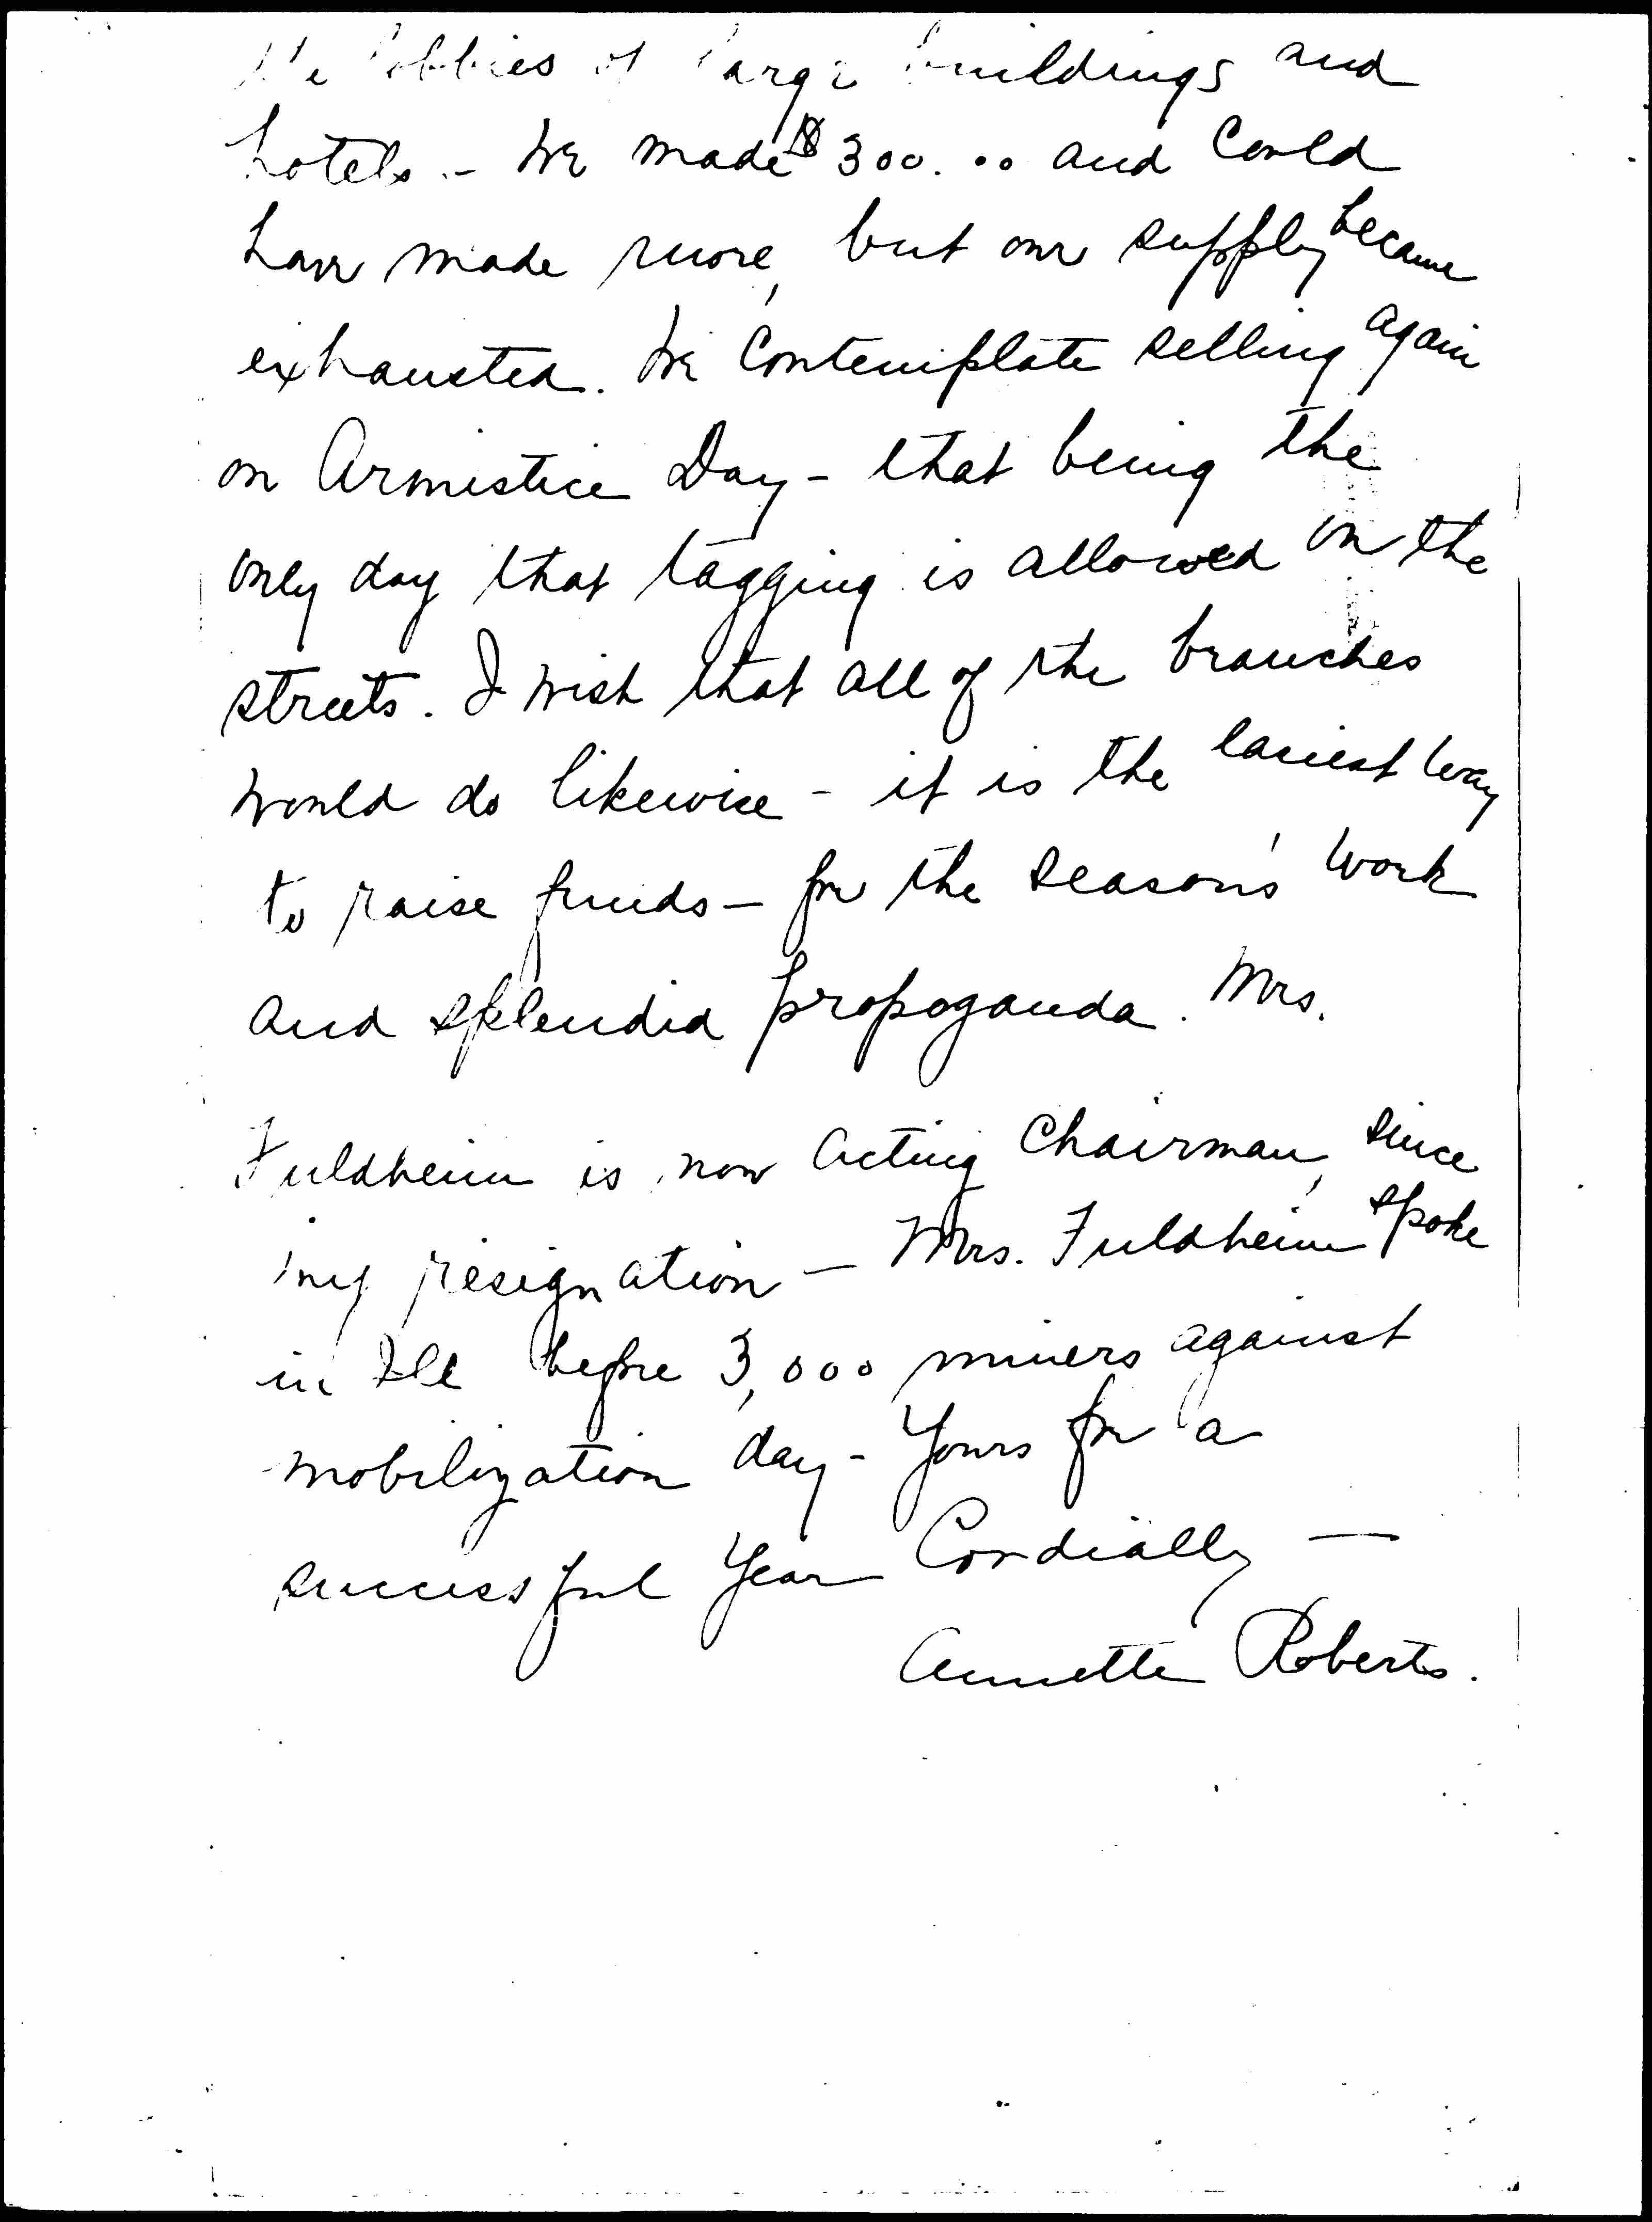 the lobbies of large buildings and
hotels - We made $300.00 and Could
have made more, but our supply became
exhausted. We Contemplate selling again
on Armistice Day - that being the
only day that tagging is allowed on the
streets. I wish that all of the branches
would do likewise - it is the easiest way
to raise funds - for the season's work
and splendid propoganda. Mrs.
Fuldheim is now Acting Chairman, since
my resignation - Mrs. Fuldheim spoke
in Ill before 3,000 miners against
mobilization day - Yours for a
successful Year Cordially —
Annette Roberts.